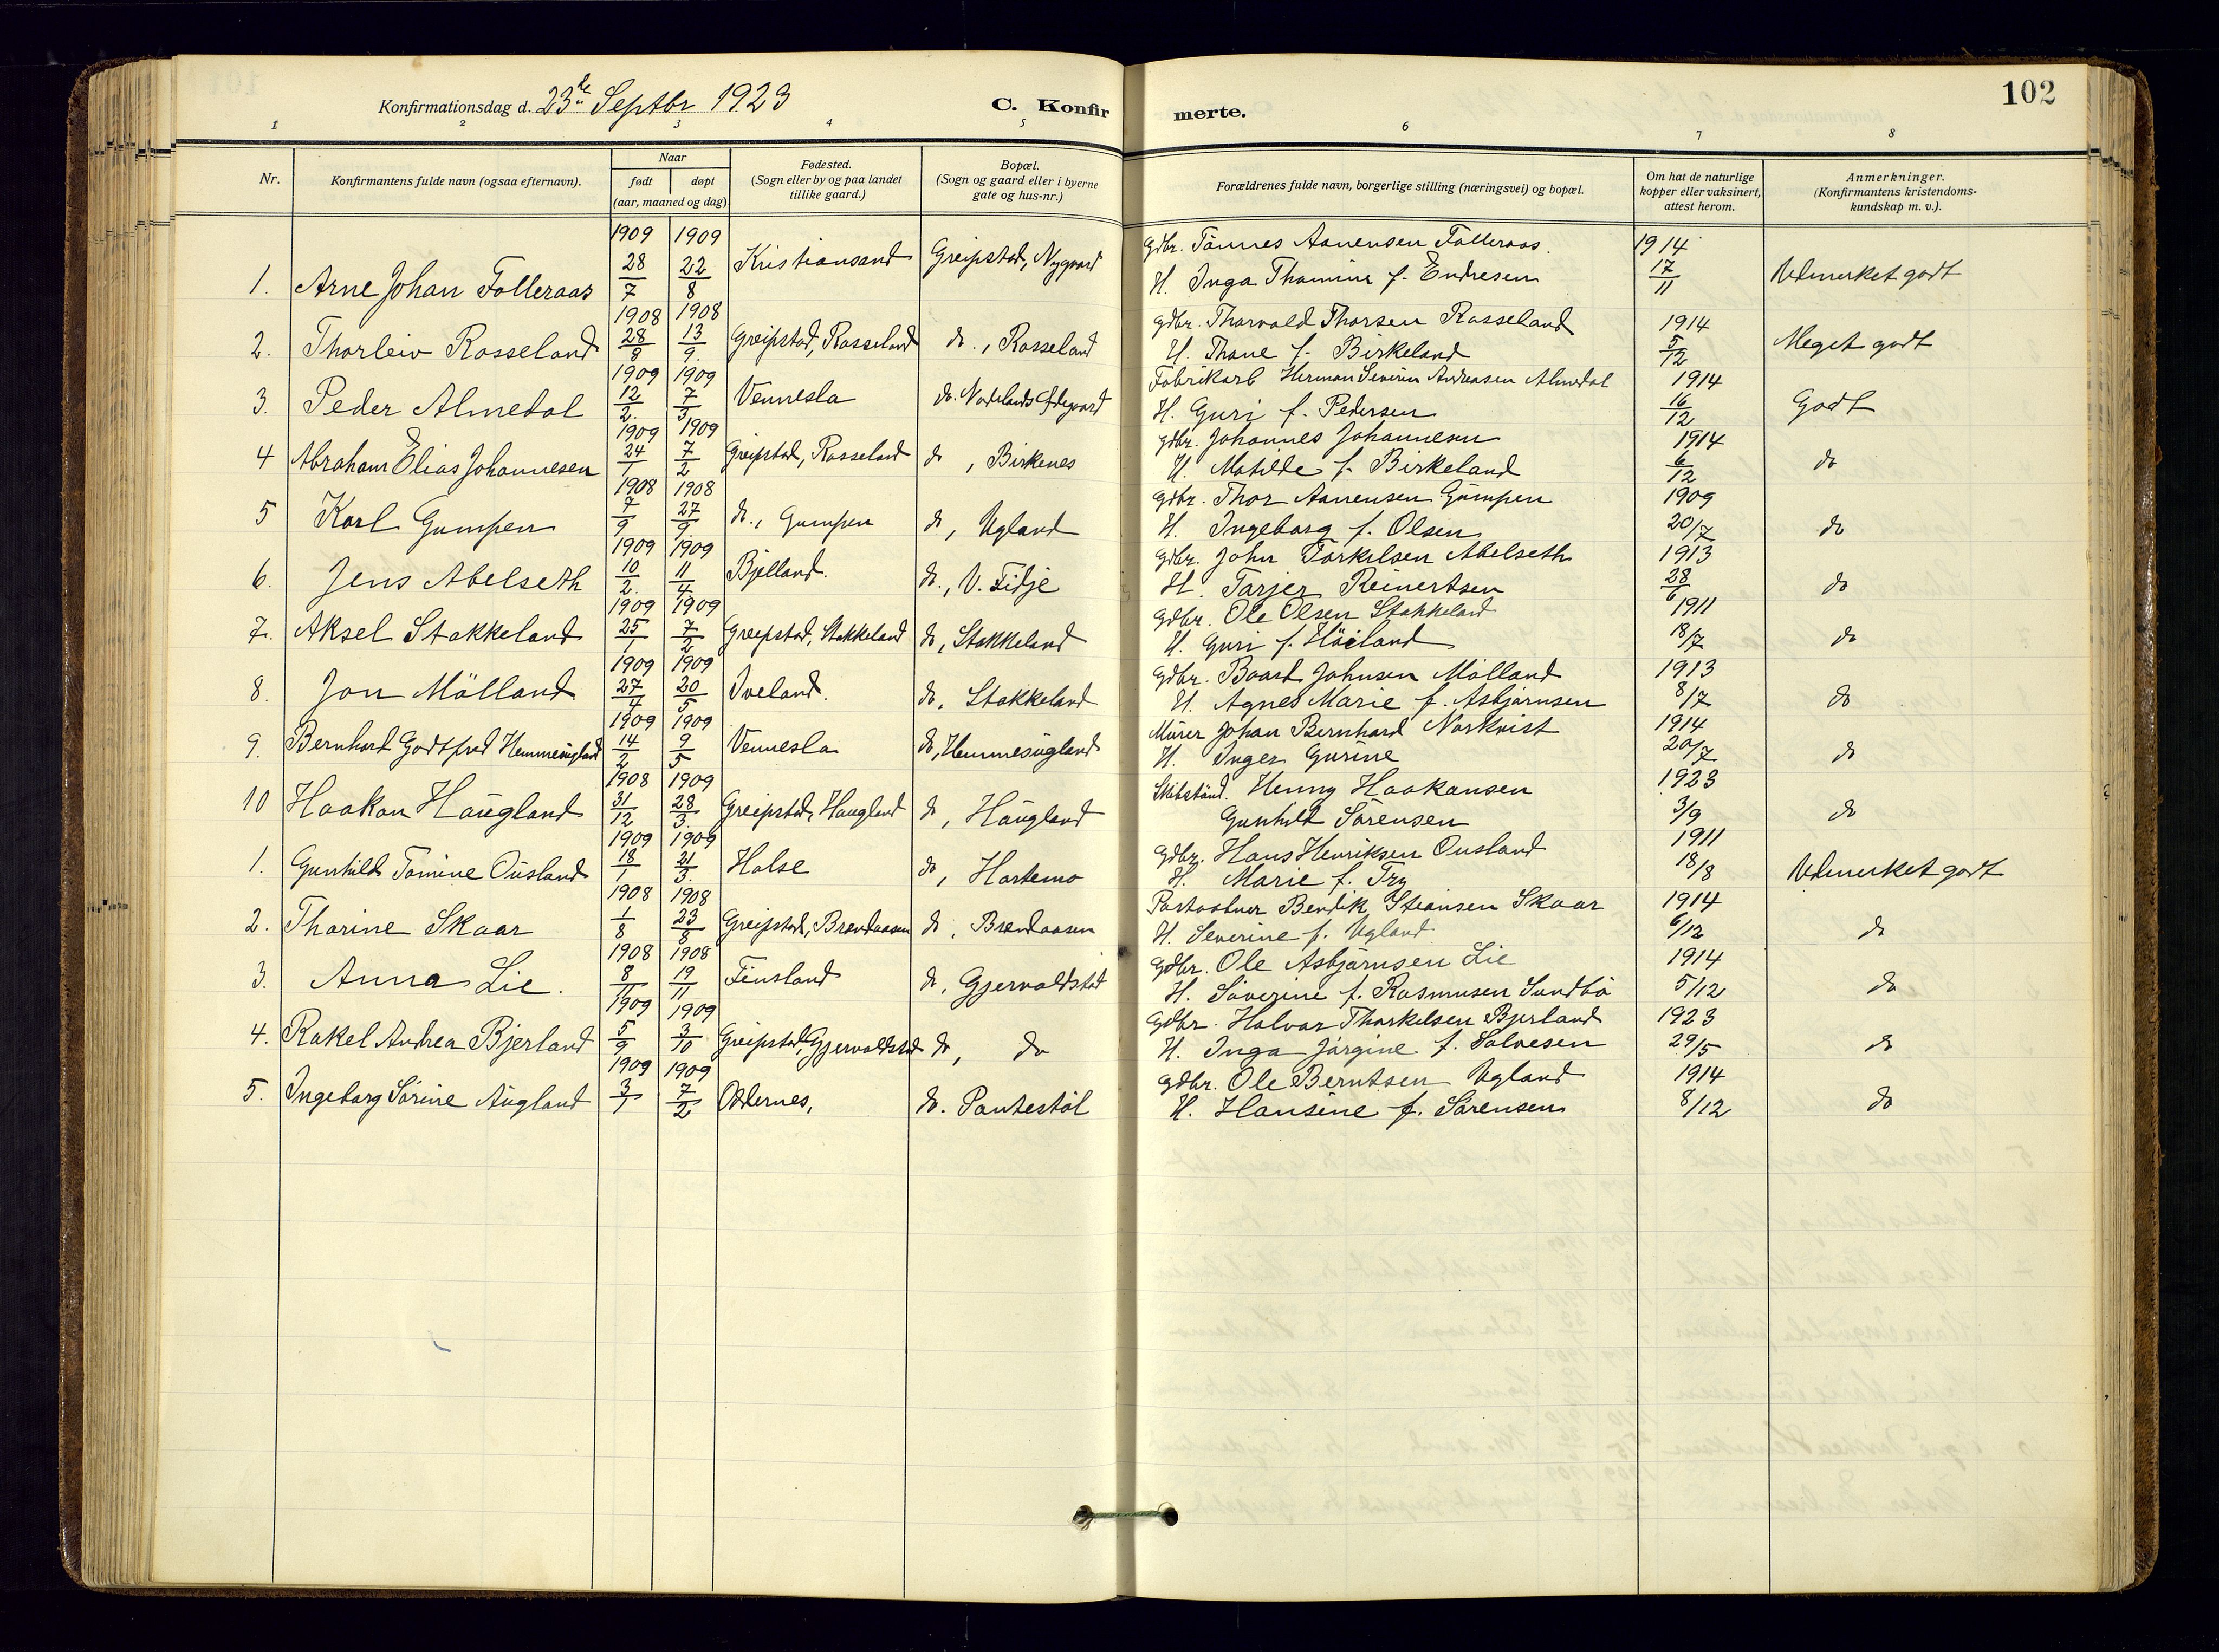 102
Konfirmationsdag d. 23de Septbr 1923
C. Konfir
merte.
1 2 3 4 5 6 7 8
Nr.
Konfirmantens fulde navn (ogsaa efternavn).
Naar
født
døpt
(aar, maaned og dag)
Fødested.
(Sogn eller by og paa landet
tillike gaard.)
Bopæl.
(Sogn og gaard eller i byerne
gate og hus-nr.)
Forældrenes fulde navn, borgerlige stilling (næringsvei) og bopæl.
Om hat de naturlige
kopper eller vaksinert,
attest herom.
Anmerkninger.
(Konfirmantens kristendoms-
kundskap m. v.).
1. Arne Johan Følleraas 1909 28/7 1909 22/8 Kristiansand Greipstad, Nygaard Gdbr. Tønnes Aanensen Følleraas. 1914 17/11 Udmerket godt
H. Inga Thomine f. Endresen
2. Thorleiv Rosseland 1908 28/8 1908 13/9. Greipstad, Rosseland do., Rosseland Gdbr. Thorvald Thorsen Rosseland 1914 5/12 Meget godt
H. Thone f. Birkeland
3. Peder Almedal 1909 12/2. 1909 7/3 Vennesla do. Nodelands Ødegaard Fabrikarb Herman Severin Andreasen Almedal 1914 16/12 Godt
H. Guri f. Pedersen
4 Abraham Elias Johannesen 1909 24/1 1909 7/2 Greipstad, Rosseland do, Birkenes Gdbr. Johannes Johannesen 1914 6/12 do
H. Matilde f. Birkeland
5 Karl Gumpen 1908 7/9 1908 27/9. do., Gumpen do, Ugland Gdbr. Thor Aanensen Gumpen 1909 20/7 do
H. Ingeborg f. Olsen
6. Jens Abelseth 1909 10/2. 1909 11/4 Bjelland. do., V. Tidje Gdbr. John Torkilsen Abelseth 1913 28/6 do
H. Tarjer Reinertsen
7. Aksel Stokkeland 1909 25/1 1909 7/2 Greipstad, Stokkeland do, Stokkeland Gdbr. Ole Olsen Stokkeland 1911 18/7 do
H. Guri f. Høiland
8. Jon Mølland 1909 27/4 1909 20/5 Iveland. do, Stokkeland Gdbr. Baard Johnsen Mølland 1913 8/7 do
H. Agnes Marie f. Asbjørnsen
9. Bernhard Godtfred Hemmesugland 1909 14/2 1909 9/5 Vennesla do, Hemmesugland Murer Johan Bernhard Norkvist 1914 20/7 do
H. Inger Gurine
10 Haakon Haugland 1908 31/12 1909 28/3. Greipstad, Haugland do, Haugland Henny Haakonsen 1923 3/9 do
Gunhild Sørensen
1. Gunhild Tomine Ousland 1909 18/1 1909 21/3. Halse do, Hortemo Gdbr. Hans Henriksen Ousland 1911 18/8 Udmerket godt
H. Marie f. Try
2. Thorine Skaar 1908 1/8 1908 23/8 Greipstad, Brandaasen do, Brandaasen Bendik Steansen Skaar 1914 6/12 do
H. Severine f. Ugland
3. Anna Lie. 1908 8/11 1908 19/11 Finsland do, Gjervoldstad Gdbr. Ole Asbjørnsen Lie 1914 5/12 do
H. Søverine f. Rasmusen Sundbø
4. Rakel Andrea Bjerland 1909 5/9 1909 3/10 Greipstad, Gjervoldstad do, do Gdbr. Halvor Thorkelsen Bjerland 1923 29/5 do
H. Inga Jørgine f. Salvesen
5. Ingeborg Sørine Augland 1909 3/1 1909 7/2 Oddernes, do. Pantestøl Gdbr. Ole Berntsen Ugland 1914 8/12 do
H. Hansine f. Sørensen